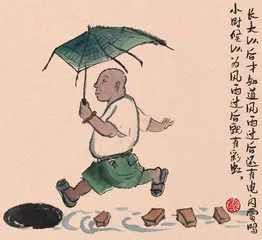 小时候以为风雨过后就有彩虹,
长大以后才知道风雨过后还有电闪雷鸣